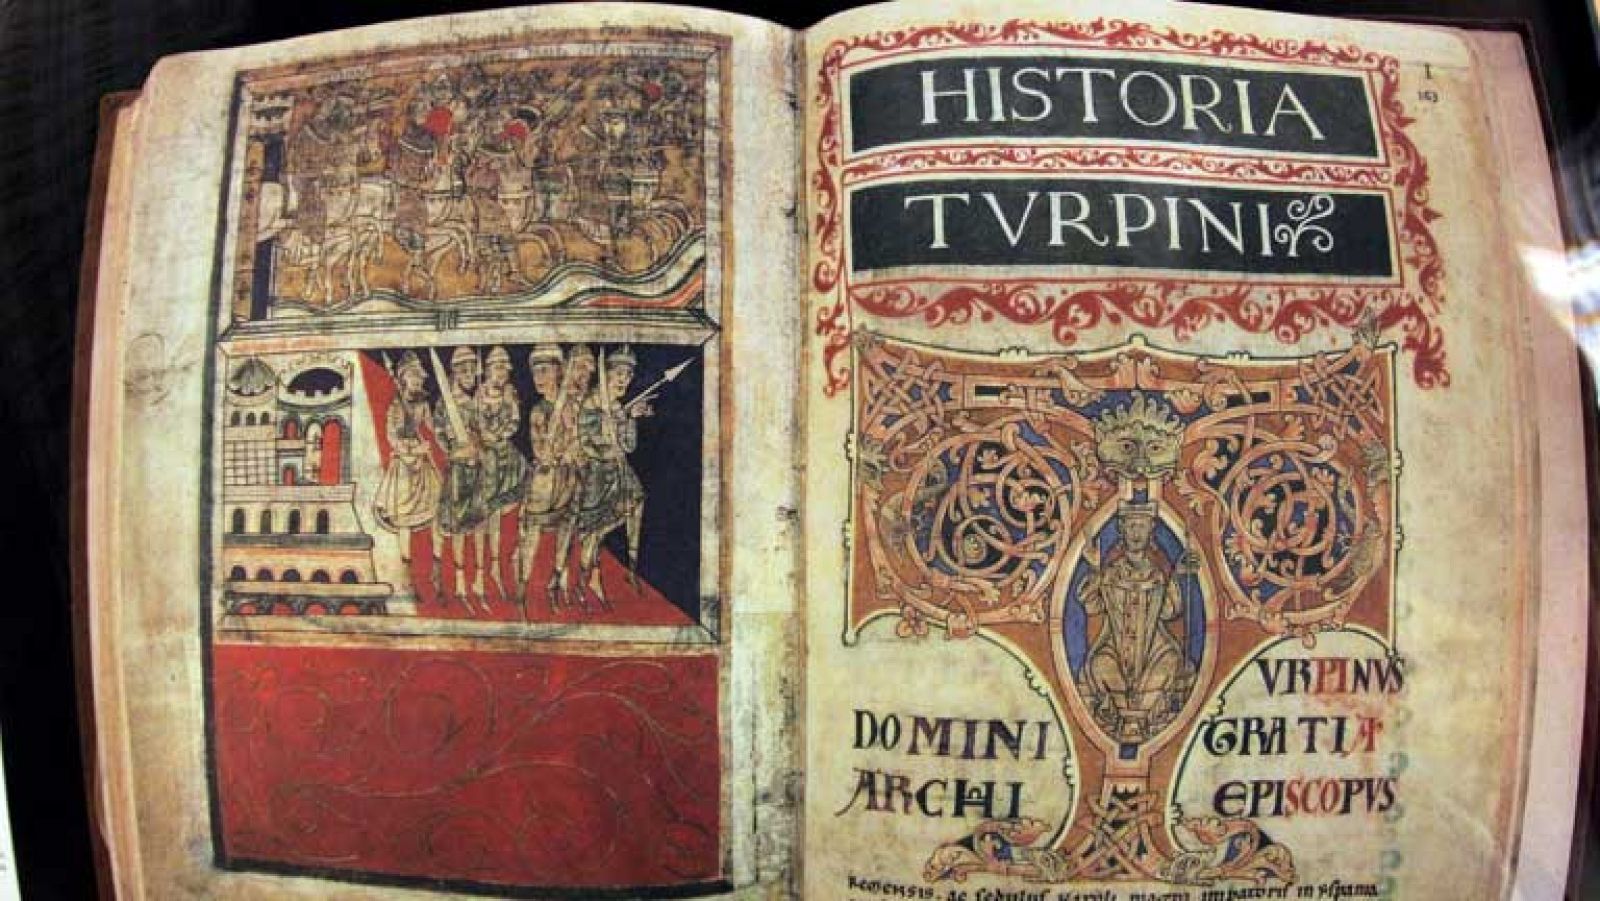 HISTORIA
TVRPINI
I
163
VRPINVS
DOMINI GRATIA
ARCHI EPISCOPVS
REMENSIS. ac sedulus karoli magni imperatoris in ispania